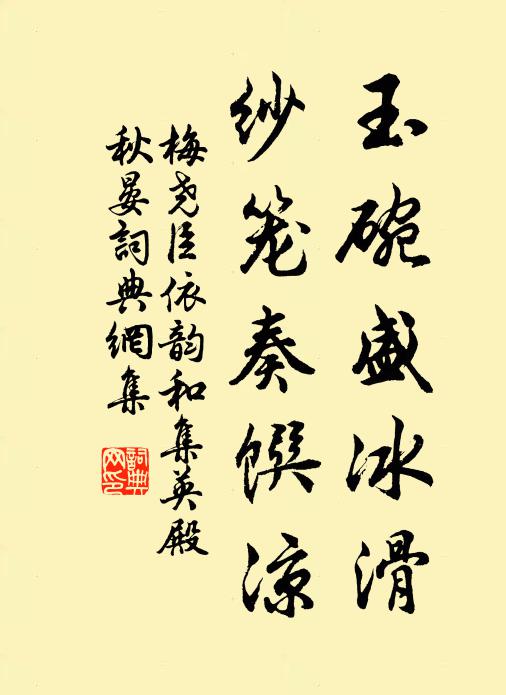 玉碗盛冰滑
纱笼奏馔凉
梅尧臣依韵和集英殿
秋晏詞典網集
詞典網印